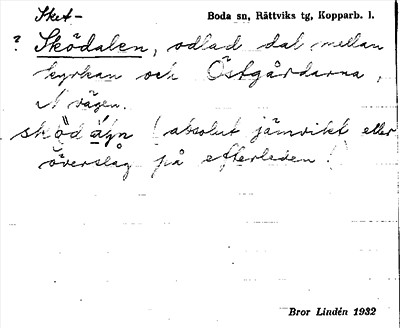 Sket- Boda sn, Rättviks tg, Kopparb. l.
? Sködalen, odlad dal mellan
kyrkan och Östgårdarna,
N vägen.
sködáɳn (absolut jämvikt eller
överslag på efterleden!)
Bror Lindén 1932